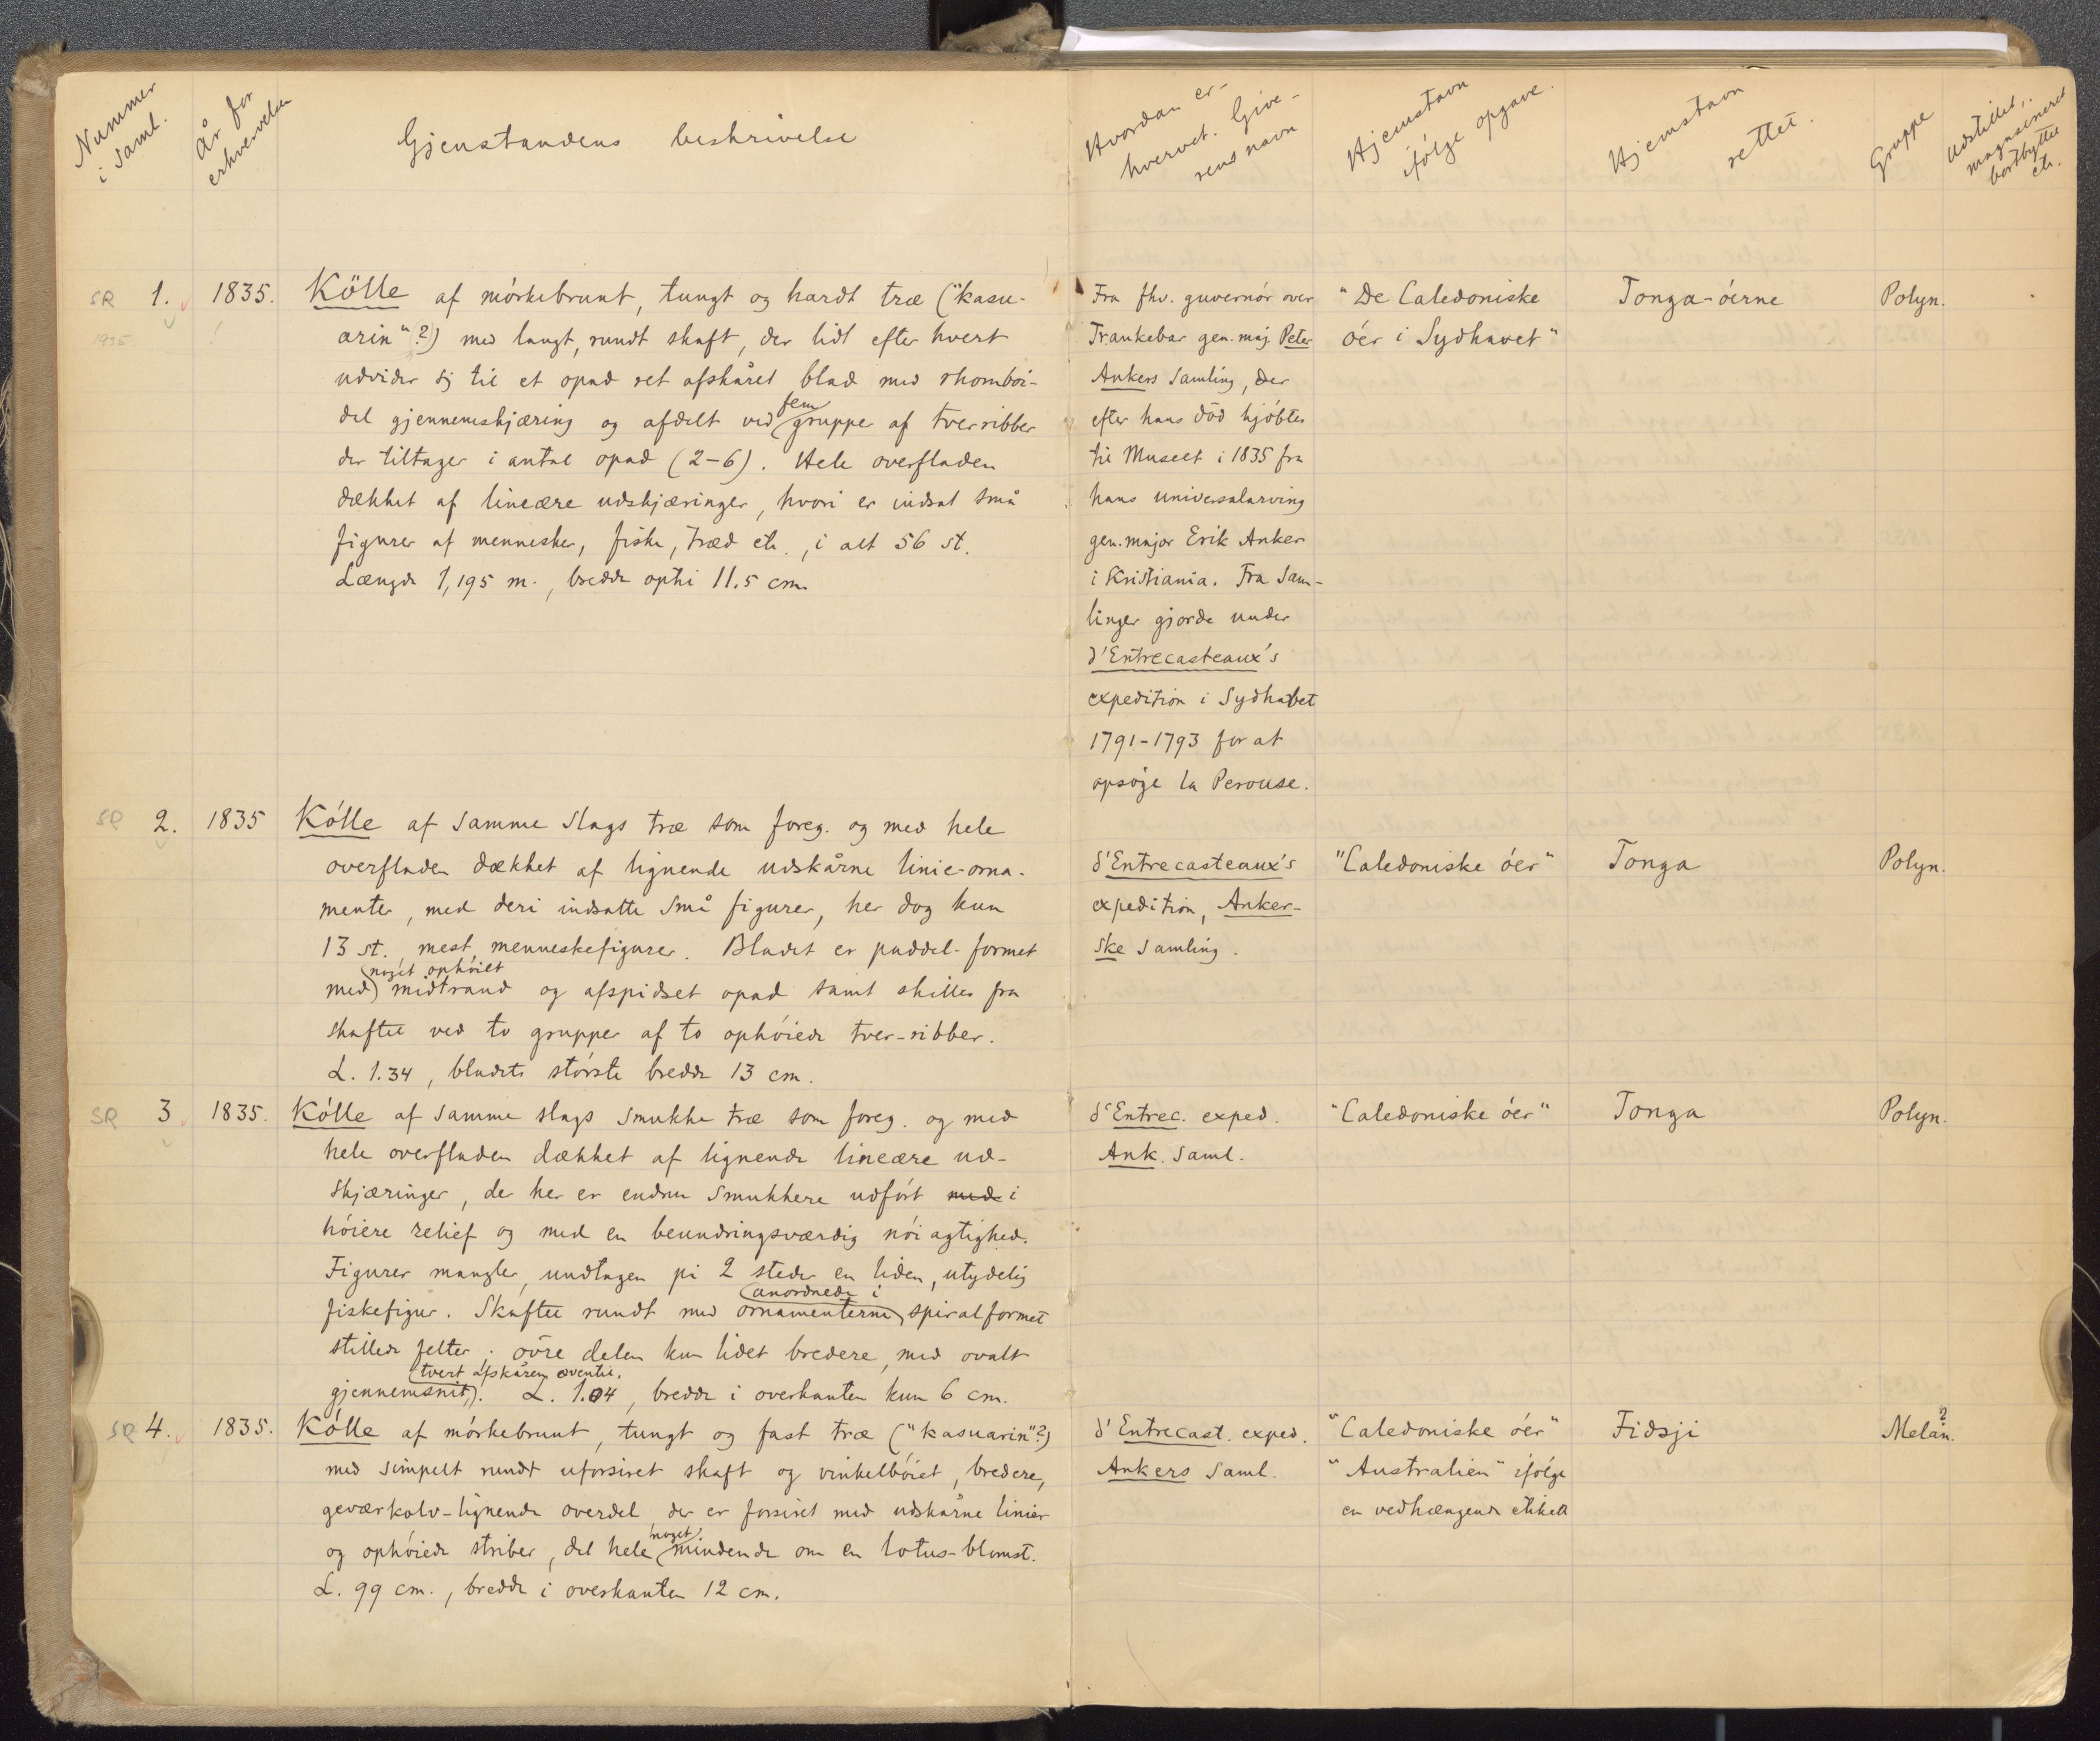 Nummer
i saml.
År for
erhvervelsen
Gjenstandens beskrivelse
Hvordan er-
hvervet. Give-
rens navn
Hjemstavn
ifólge opgave.
Hjemstavn
rettet.
Gruppe
Udstillet,
magasineret
bortbyttet
etc.
SR 1. 1835. Kölle af mórkebrunt, tungt og hardt træ ("kasu-
1935 !
arin"?) med langt, rundt skaft, der lidt efter hvert
udvider sj til et opad ret afskåret blad med rhomboi-
del gjennemskjæring og afdelt ved fem gruppe af tverribber
der tiltager i antal opad (2-6). Hele overfladen
dækket af lineære udskjæringer, hvori er indsat små
figurer af mennesker, fiske, træd etc., i alt 56 st.
Længde 1,195 m., bredde opti 11.5 cm.
Fra fhv. guvernór over
Trankebar gen. maj. Peter
Ankers samling, der
efter hans död kjóbtes
til Museet i 1835 fra
hans universalarving
gen. major Erik Anker
i Kristiania. Fra Sam-
linger gjorde under
d'Entrecasteaux's
expedition i Sydhavet
1791-1793 for at
opsöge la Perouse.
"De Caledoniske
óer i Sydhavet"
Tonga-óerne
Polyn.
SR 2. 1835 Kólle af samme slags træ som foreg. og med hele
overfladen dækket af lignende udskårne linie-orna-
menter, med deri indsatte små figurer, her dog kun
13 st., mest menneskefigurer. Bladet er paddel-formet
med noget ophóiet midtrand og afspidset opad samt skilles fra
skaftet ved to grupper af to ophóiede tver-ribber.
L. 1.34, bladets stórste bredde 13 cm.
d'Entrecasteaux's
expedition, Anker-
ske samling.
"Caledoniske óer"
Tonga
Polyn.
SR 3 1835. Kólle af samme slags smukke træ som foreg. og med
hele overfladen dækket af lignende lineære ud-
skjæringer, der her er endnu smukkere udfórt med i
hóiere relief og med en beundringsværdig nóiagtighed.
Figurer mangler, undtagen på 2 steder en liden, utydelig
fiskefigur. Skaftet rundt med ornamenterne anordnede i spiralformet
stillede felter; övre delen kun lidet bredere, med ovalt
gjennemsnit, tvert afskåren oventil. L. 1.04, bredde i overkanten kun 6 cm.
d'Entrec. exped.
Ank. saml.
"Caledoniske óer"
Tonga
Polyn.
SR 4. 1835. Kólle af mórkebrunt, tungt og fast træ ("kasuarin"?)
med simpelt rundt uforsiret skaft og vinkelbóiet, bredere,
geværkolv-lignende overdel, der er forsiret med udskårne linier
og ophóiede striber, det hele noget mindende om en lotus-blomst.
L. 99 cm., bredde i overkanten 12 cm.
d'Entrecast. exped.
Ankers saml.
"Caledoniske óer"
"Australien" ifólge
en vedhængende etiket
Fidsji
Melan.?